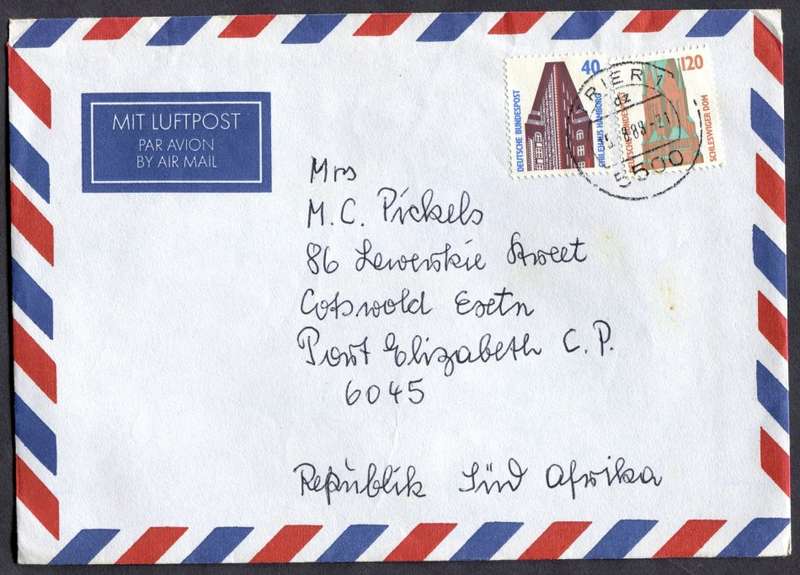 MIT LUFTPOST
PAR AVION
BY AIR MAIL
40
DEUTSCHE BUNDESPOST
CHILEHAUS HAMBURG
120
SCHLESWIGER DOM
TRIER 1
dz
88-21
5500
Mrs
M. C. Pickels
86 Lewerskie Street
Cotswold Exetn
Port Elizabeth C. P.
6045
Republik Süd Afrika